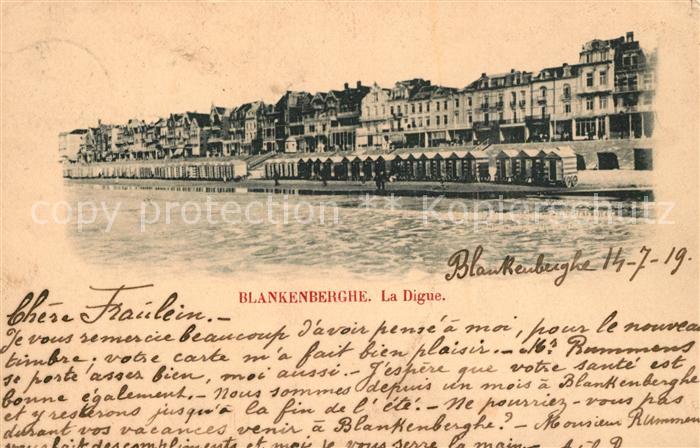 copy protection · Kopierschutz
Blankenberghe 14-7-19.
BLANKENBERGHE. La Digue.
Chère Fraülein. -
Je vous remercie beaucoup d'avoir pensé à moi, pour le nouveau
timbre; votre carte m'a fait bien plaisir. - Mr. Rummens
se porte asser bien, moi aussi. - J'espère que votre santé est
bonne également. - Nous sommes depuis un mois à Blankenberghe
et y resterons jusqu'à la fin de l'été. - Ne pourriez-vous pas
durant vos vacances venir à Blankenberghe? - Monsieur Rummens
vous fait des compliments et moi je vous serre la main